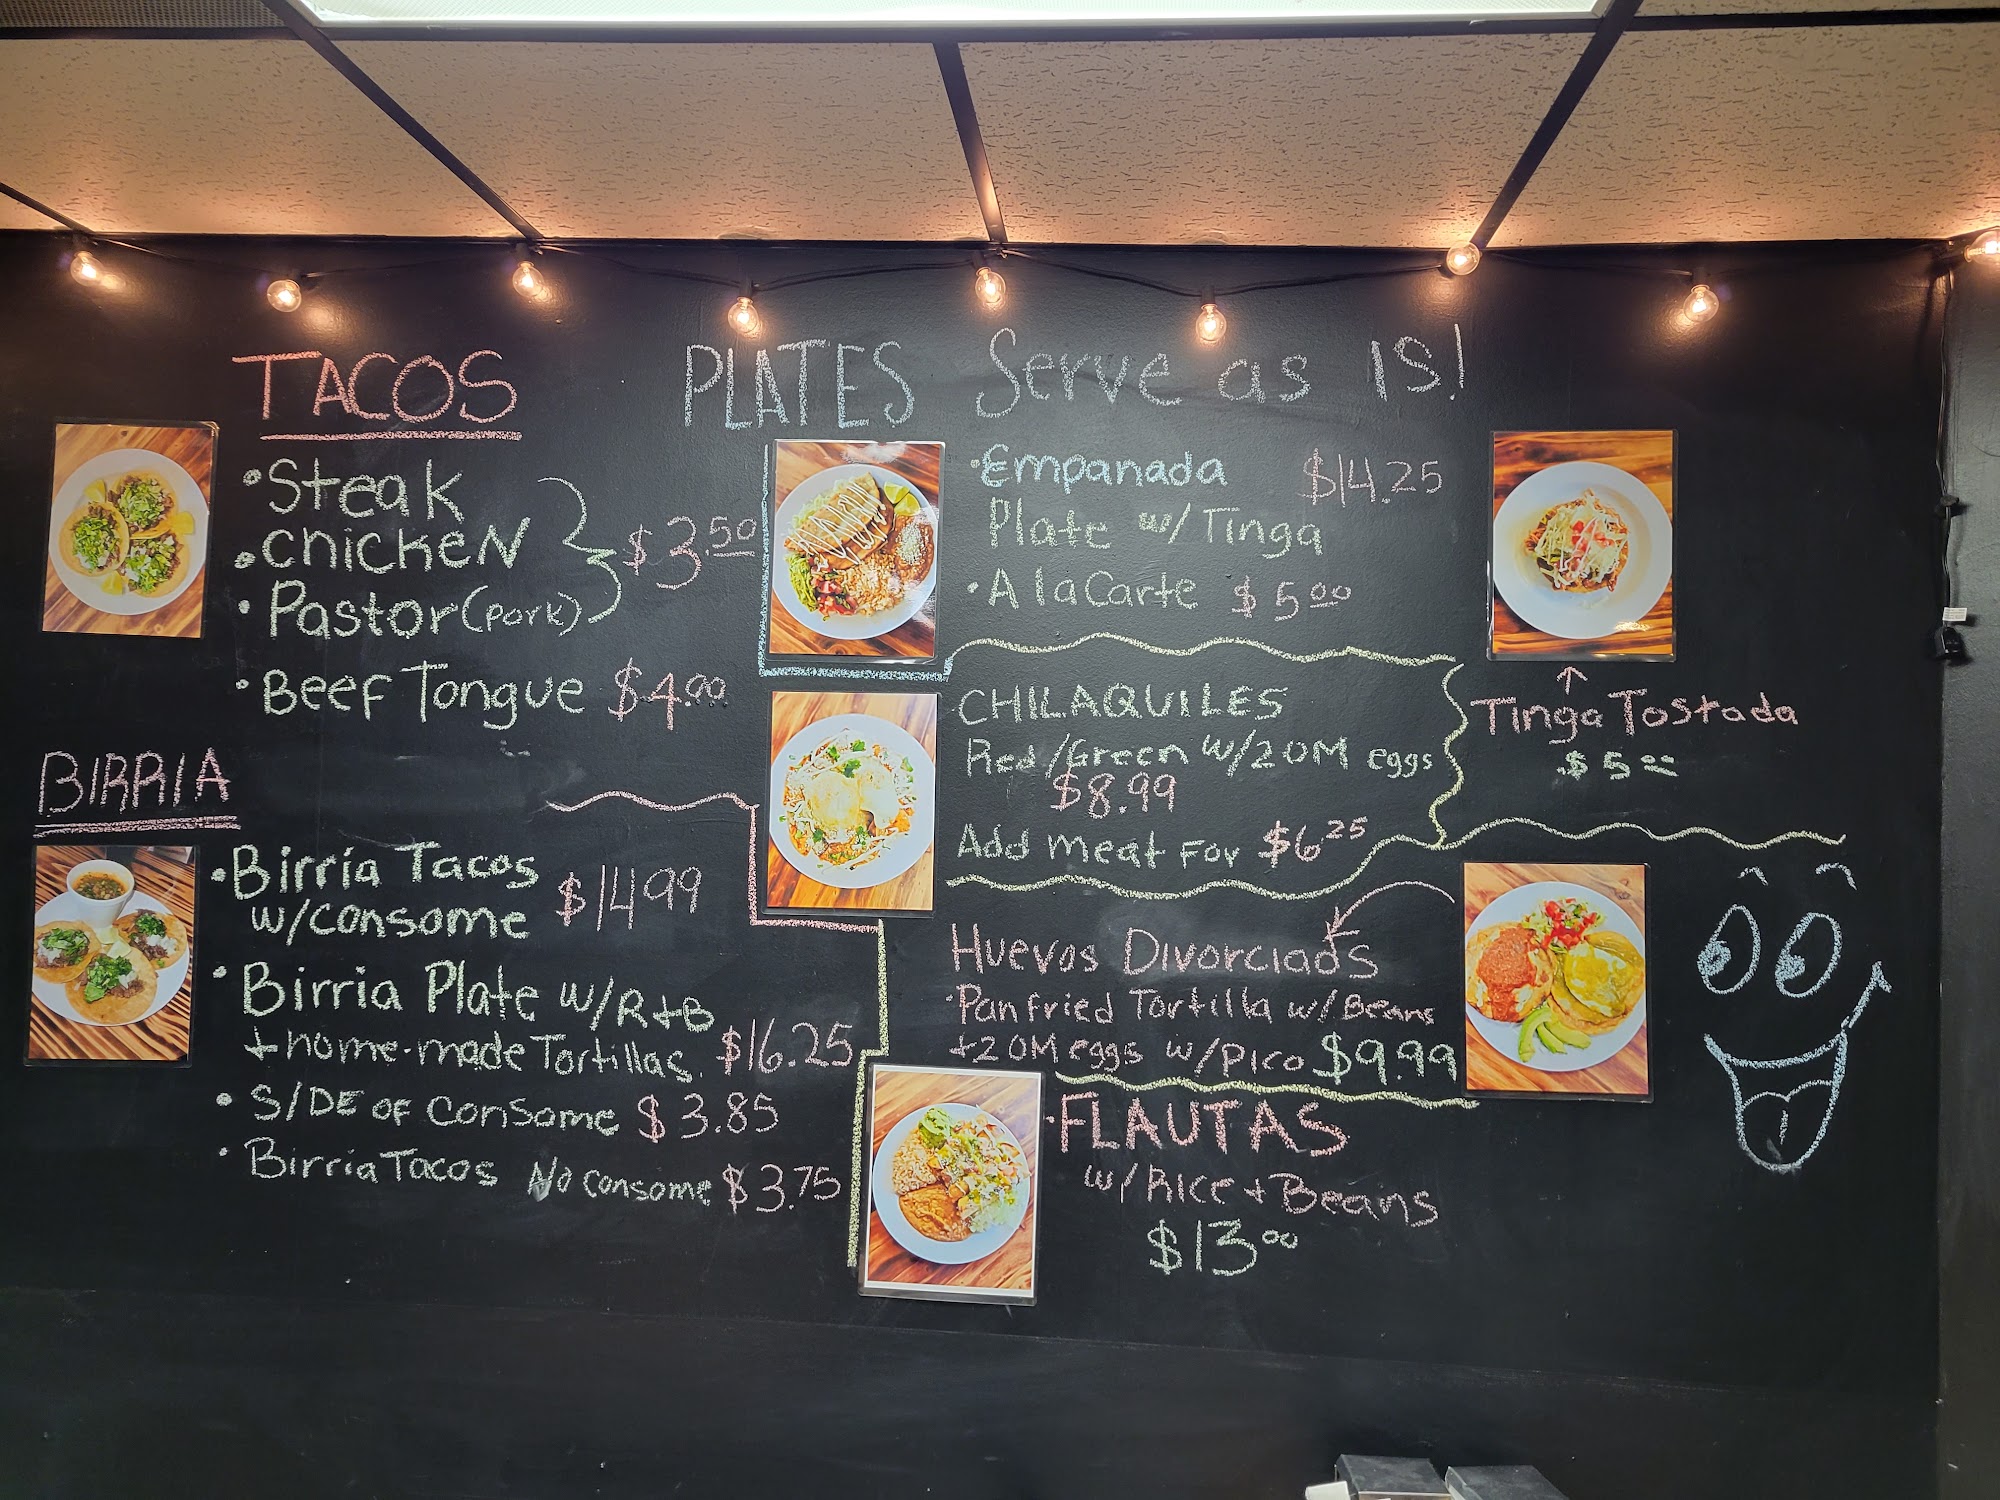 TACOS
• Steak
• chicken
• Pastor (pork)
$3.50
• Beef Tongue $4.00
BIRRIA
• Birria Tacos
w/consome
$14.99
• Birria Plate w/R+B
+ home-made Tortillas. $16.25
• S/DE OF Consome $3.85
• Birria Tacos No consome $3.75
PLATES Serve as IS!
• Empanada $14.25
Plate w/Tinga
• A la Carte $5.00
CHILAQUILES
Red/Green w/2 OM eggs
$8.99
Add meat For $6.25
Tinga Tostada
$5.00
Huevos Divorciads
• Pan fried Tortilla w/Beans
+2 OM eggs w/pico $9.99
• FLAUTAS
w/RICE + Beans
$13.00